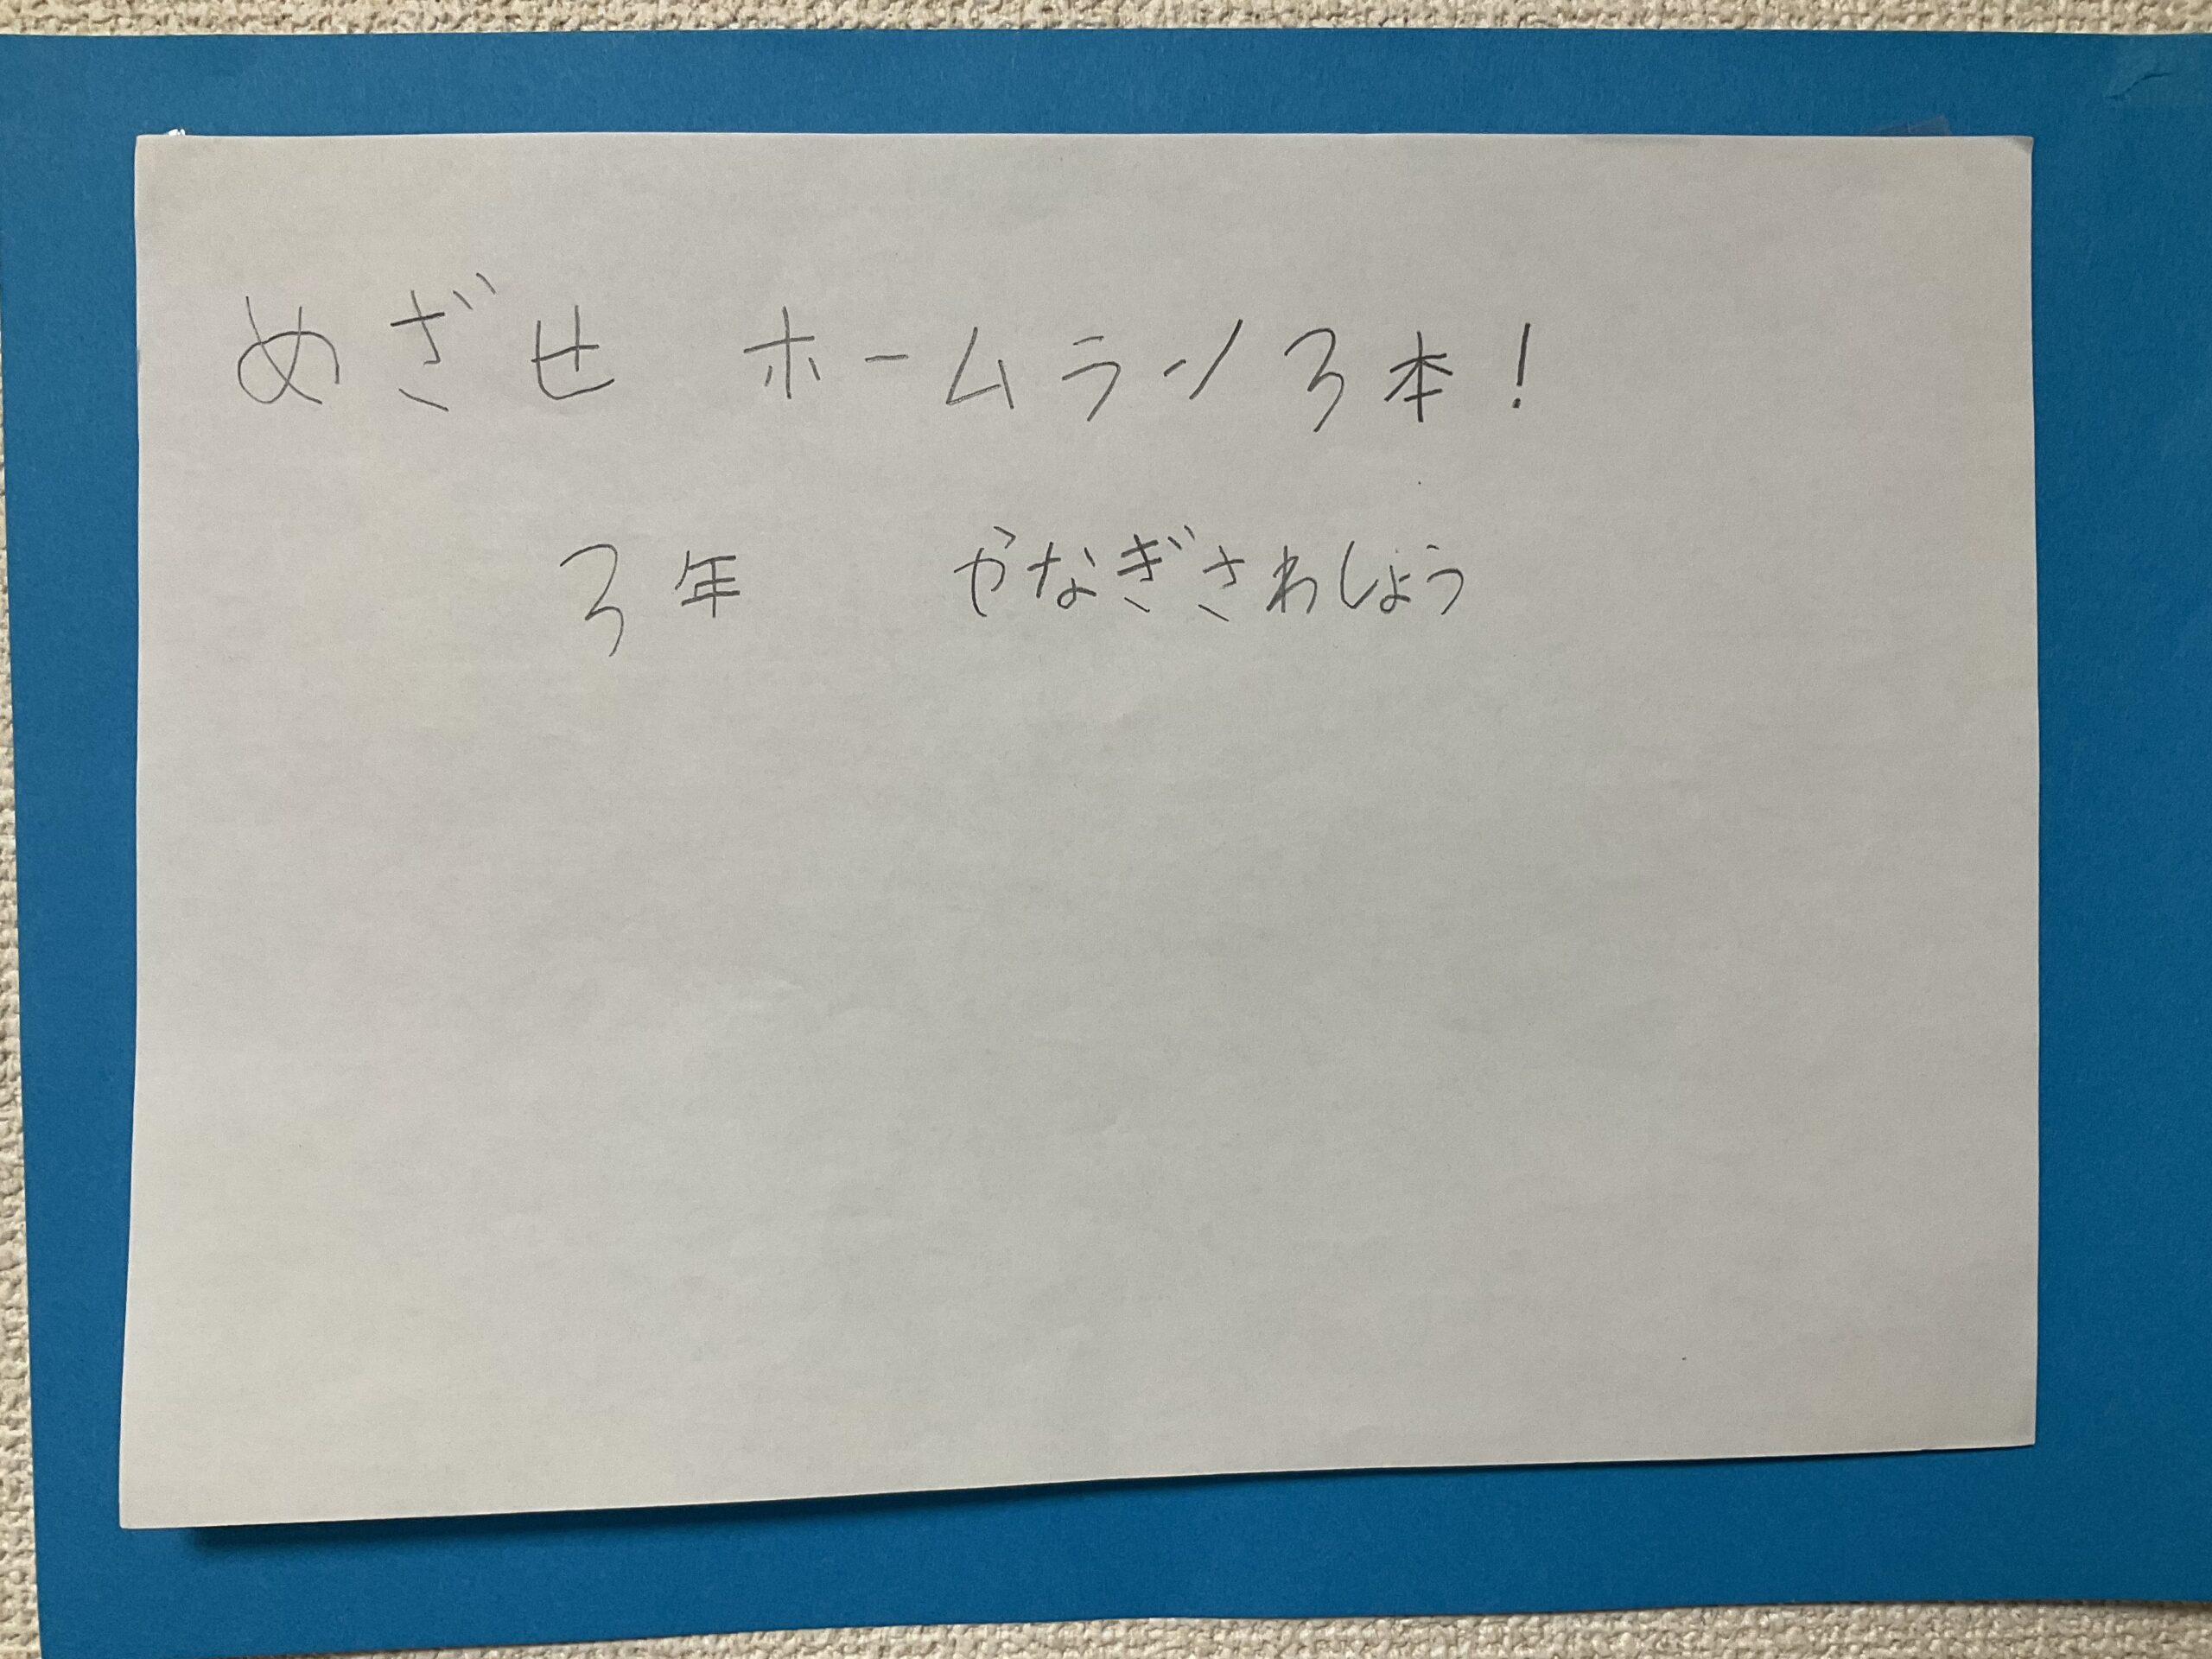 めざせ ホームラン3本!
3年 やなぎさわしょう